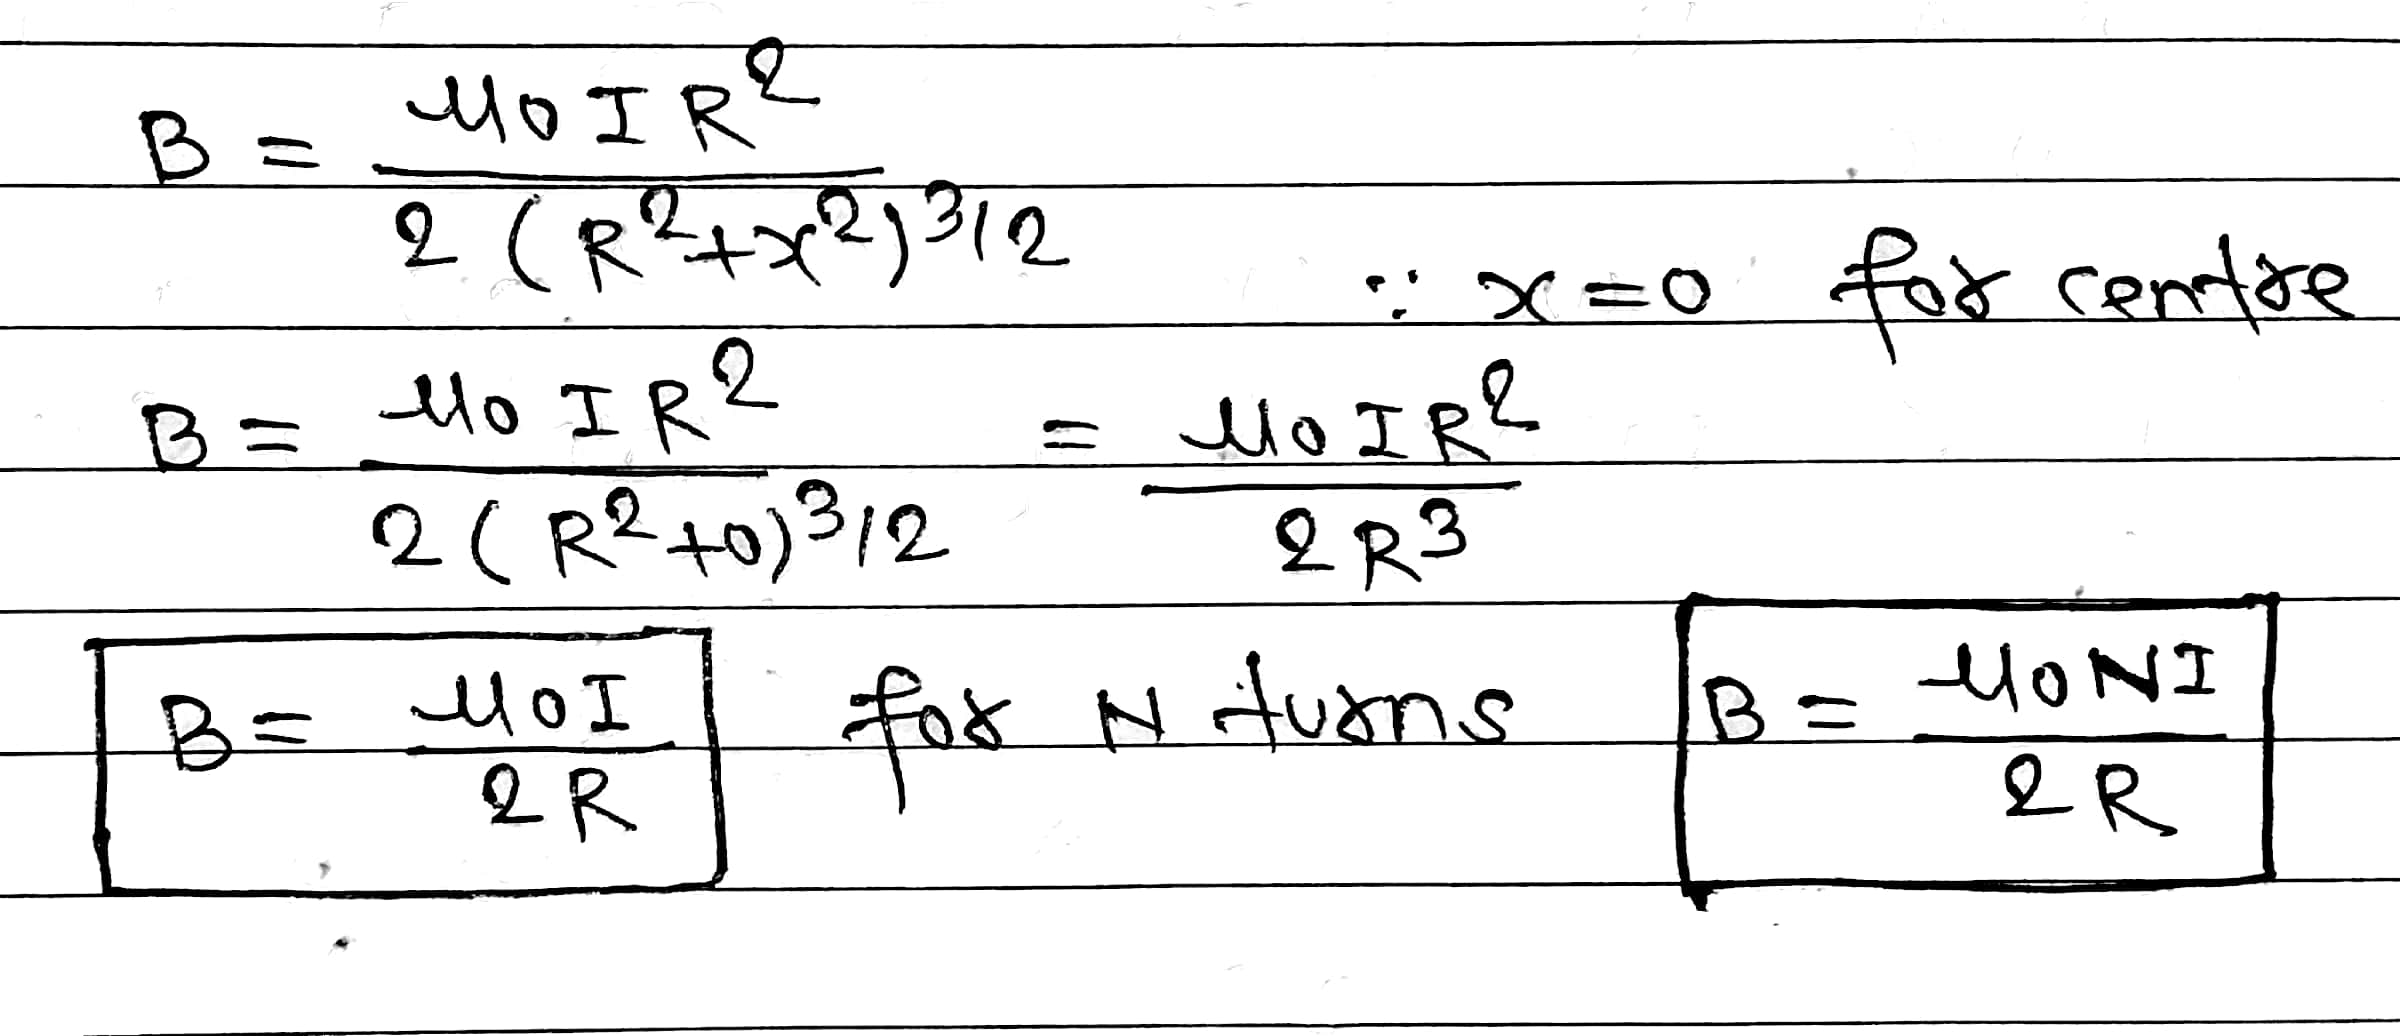 B = μ0 I R² / 2 (R²+x²)^3/2
∵ x=0 for centre
B = μ0 I R² / 2 (R²+0)^3/2 = μ0 I R² / 2 R³
B = μ0 I / 2 R for N turns B = μ0 N I / 2 R